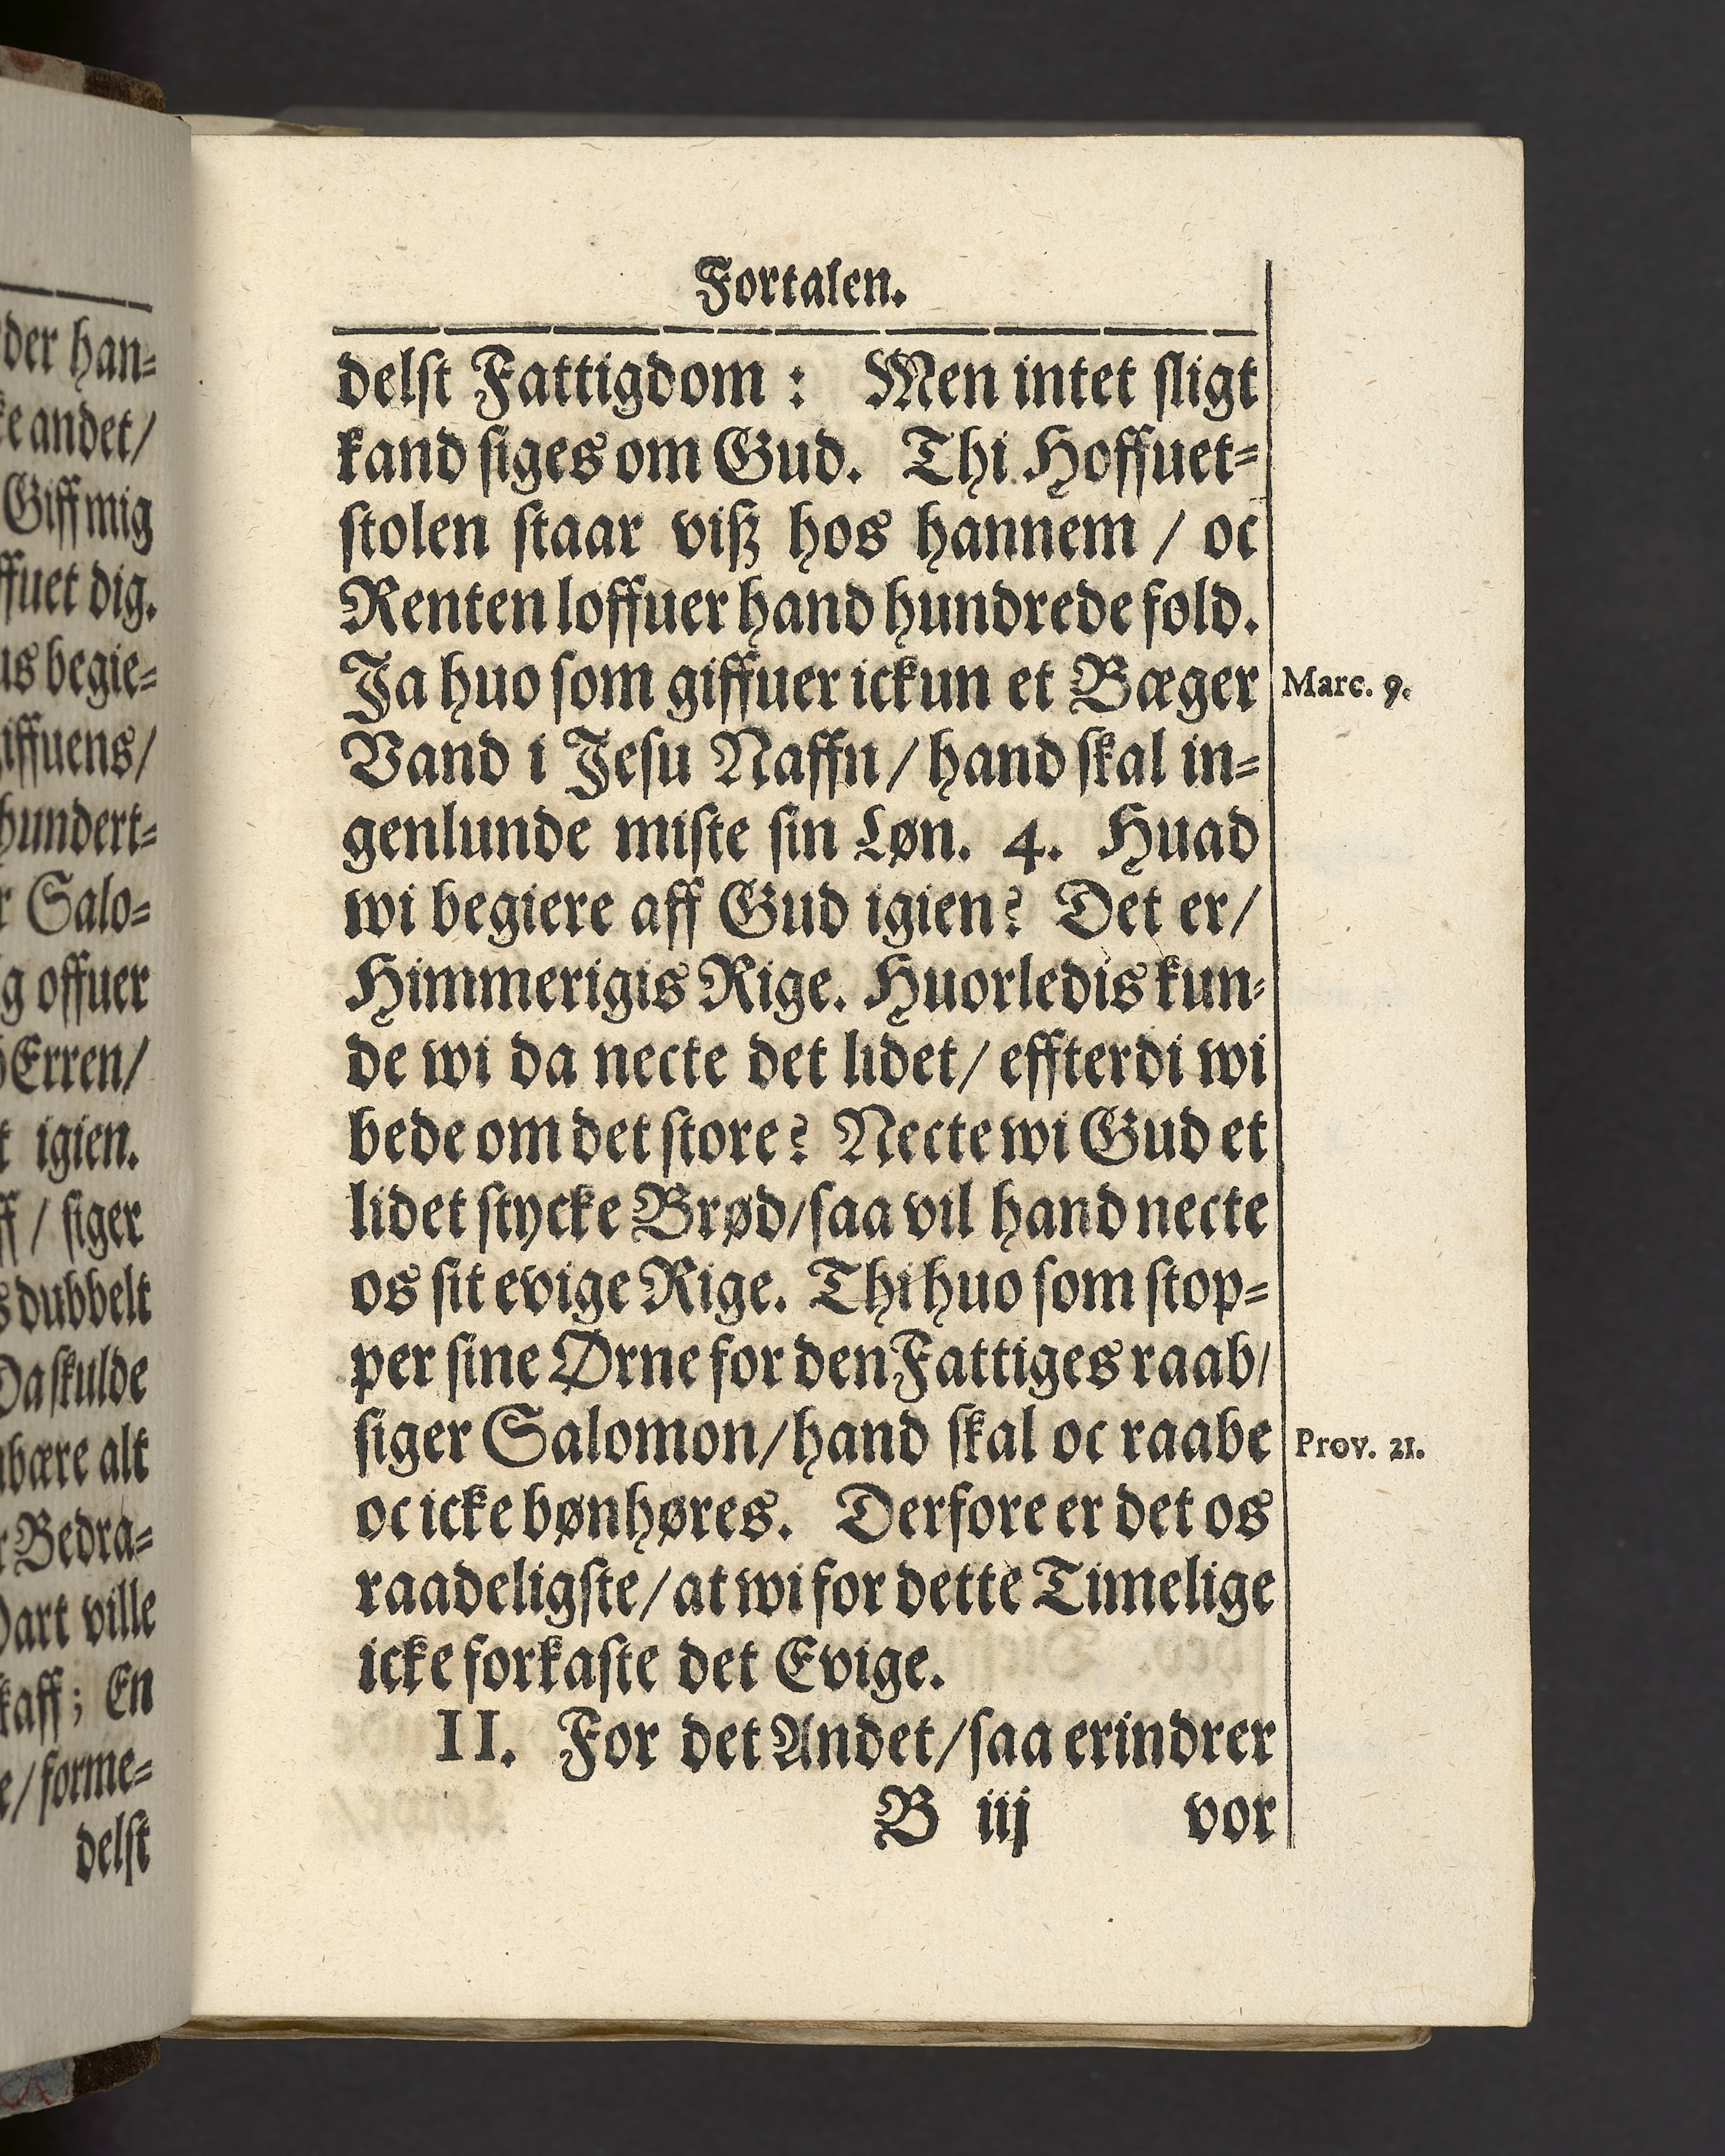 der han⸗
ke andet/
Giff mig
ffuet dig.
us begie⸗
giffuens/
hundert⸗
r Salo⸗
g offuer
Erren/
t igien.
ff / siger
s dubbelt
Da skulde
bære alt
r Bedra⸗
Dart ville
kaff; En
e/ forme⸗
delst
Fortalen.
delst Fattigdom : Men intet sligt
kand siges om Gud. Thi Hoffuet⸗
stolen staar viß hos hannem / oc
Renten loffuer hand hundrede fold.
Ja huo som giffuer ickun et Bæger
Marc. 9.
Vand i Jesu Naffn / hand skal in⸗
genlunde miste sin Løn. 4. Huad
wi begiere aff Gud igien? Det er/
Himmerigis Rige. Huorledis kun⸗
de wi da necte det lidet/ effterdi wi
bede om det store? Necte wi Gud et
lidet stycke Brød/saa vil hand necte
os sit evige Rige. Thi huo som stop⸗
per sine Ørne for den Fattiges raab/
siger Salomon/hand skal oc raabe
Prov. 21.
oc icke bønhøres. Derfore er det os
raadeligste/at wi for dette Timelige
icke forkaste det Evige.
II. For det Andet/saa erindrer
B iij vor